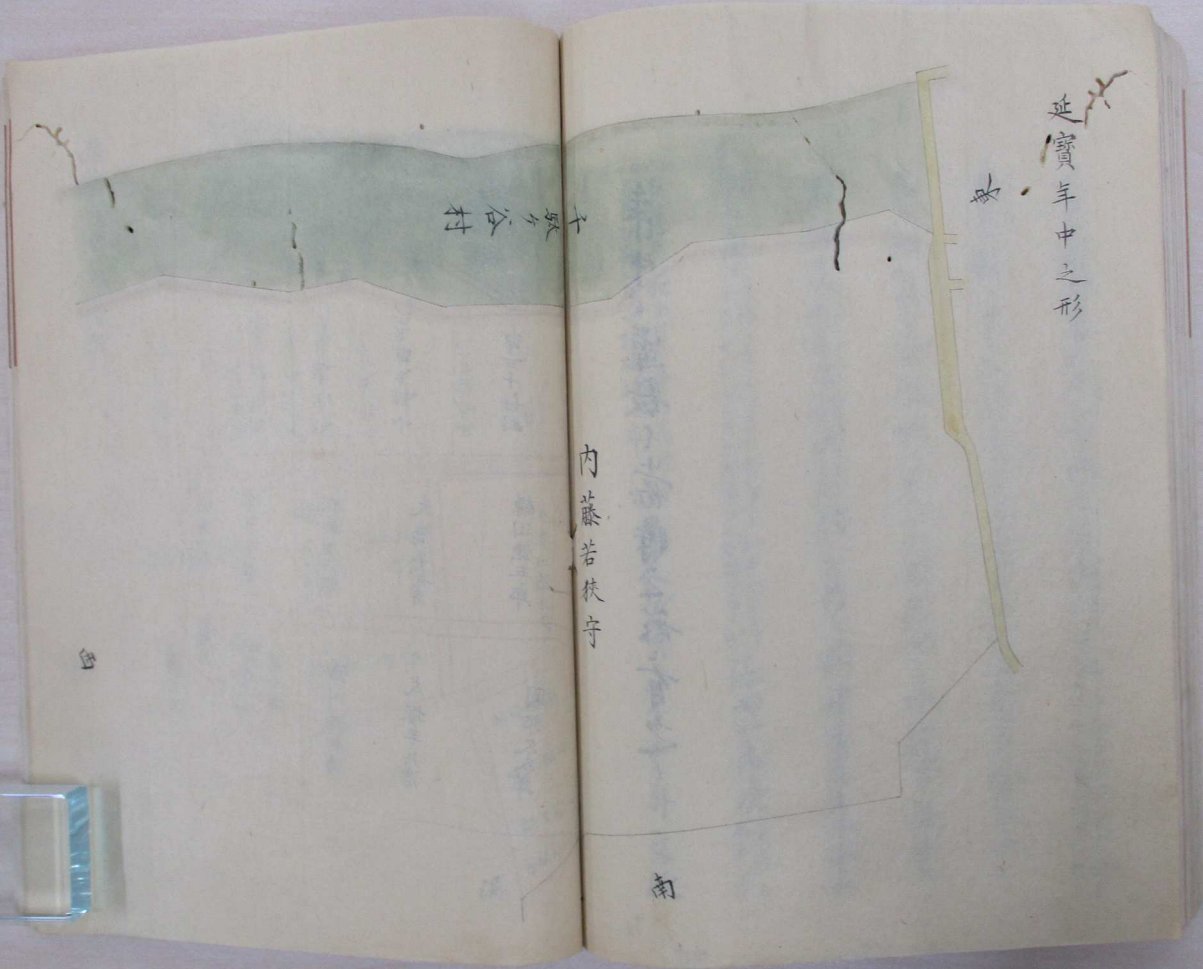 延寶年中之形
東
千駄ヶ谷村
内藤若狹守
南
西